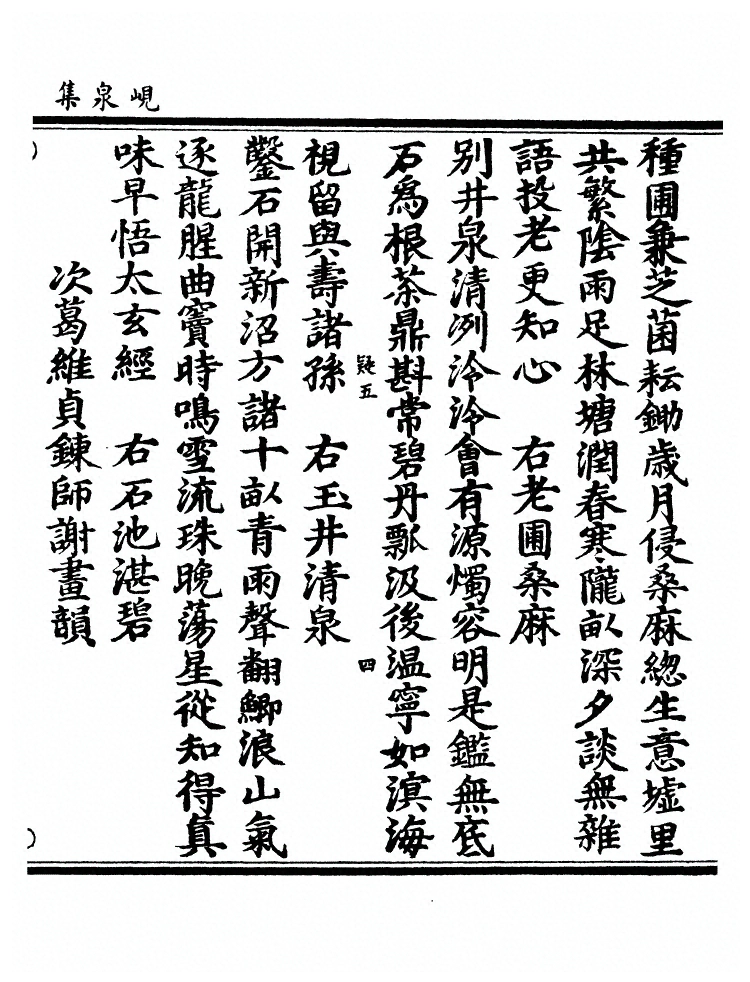 峴泉集
種圃兼芝菌耘鋤歲月侵桑麻緫生意墟里
共繁陰雨足林塘潤春寒隴畝深夕談無雜
語投老更知心　右老圃桑麻
別井泉清冽泠泠會有源燭容明是鑑無底
石爲根茶鼎斟常碧丹瓢汲後溫寧如溟海
疑五　四
視留與壽諸孫　右玉井清泉
鑿石開新沼方諸十畝青雨聲翻鯽浪山氣
逐龍腥曲竇時鳴雪流珠晚蕩星從知得真
味早悟太玄經　右石池湛碧
次葛維貞鍊師謝畫韻